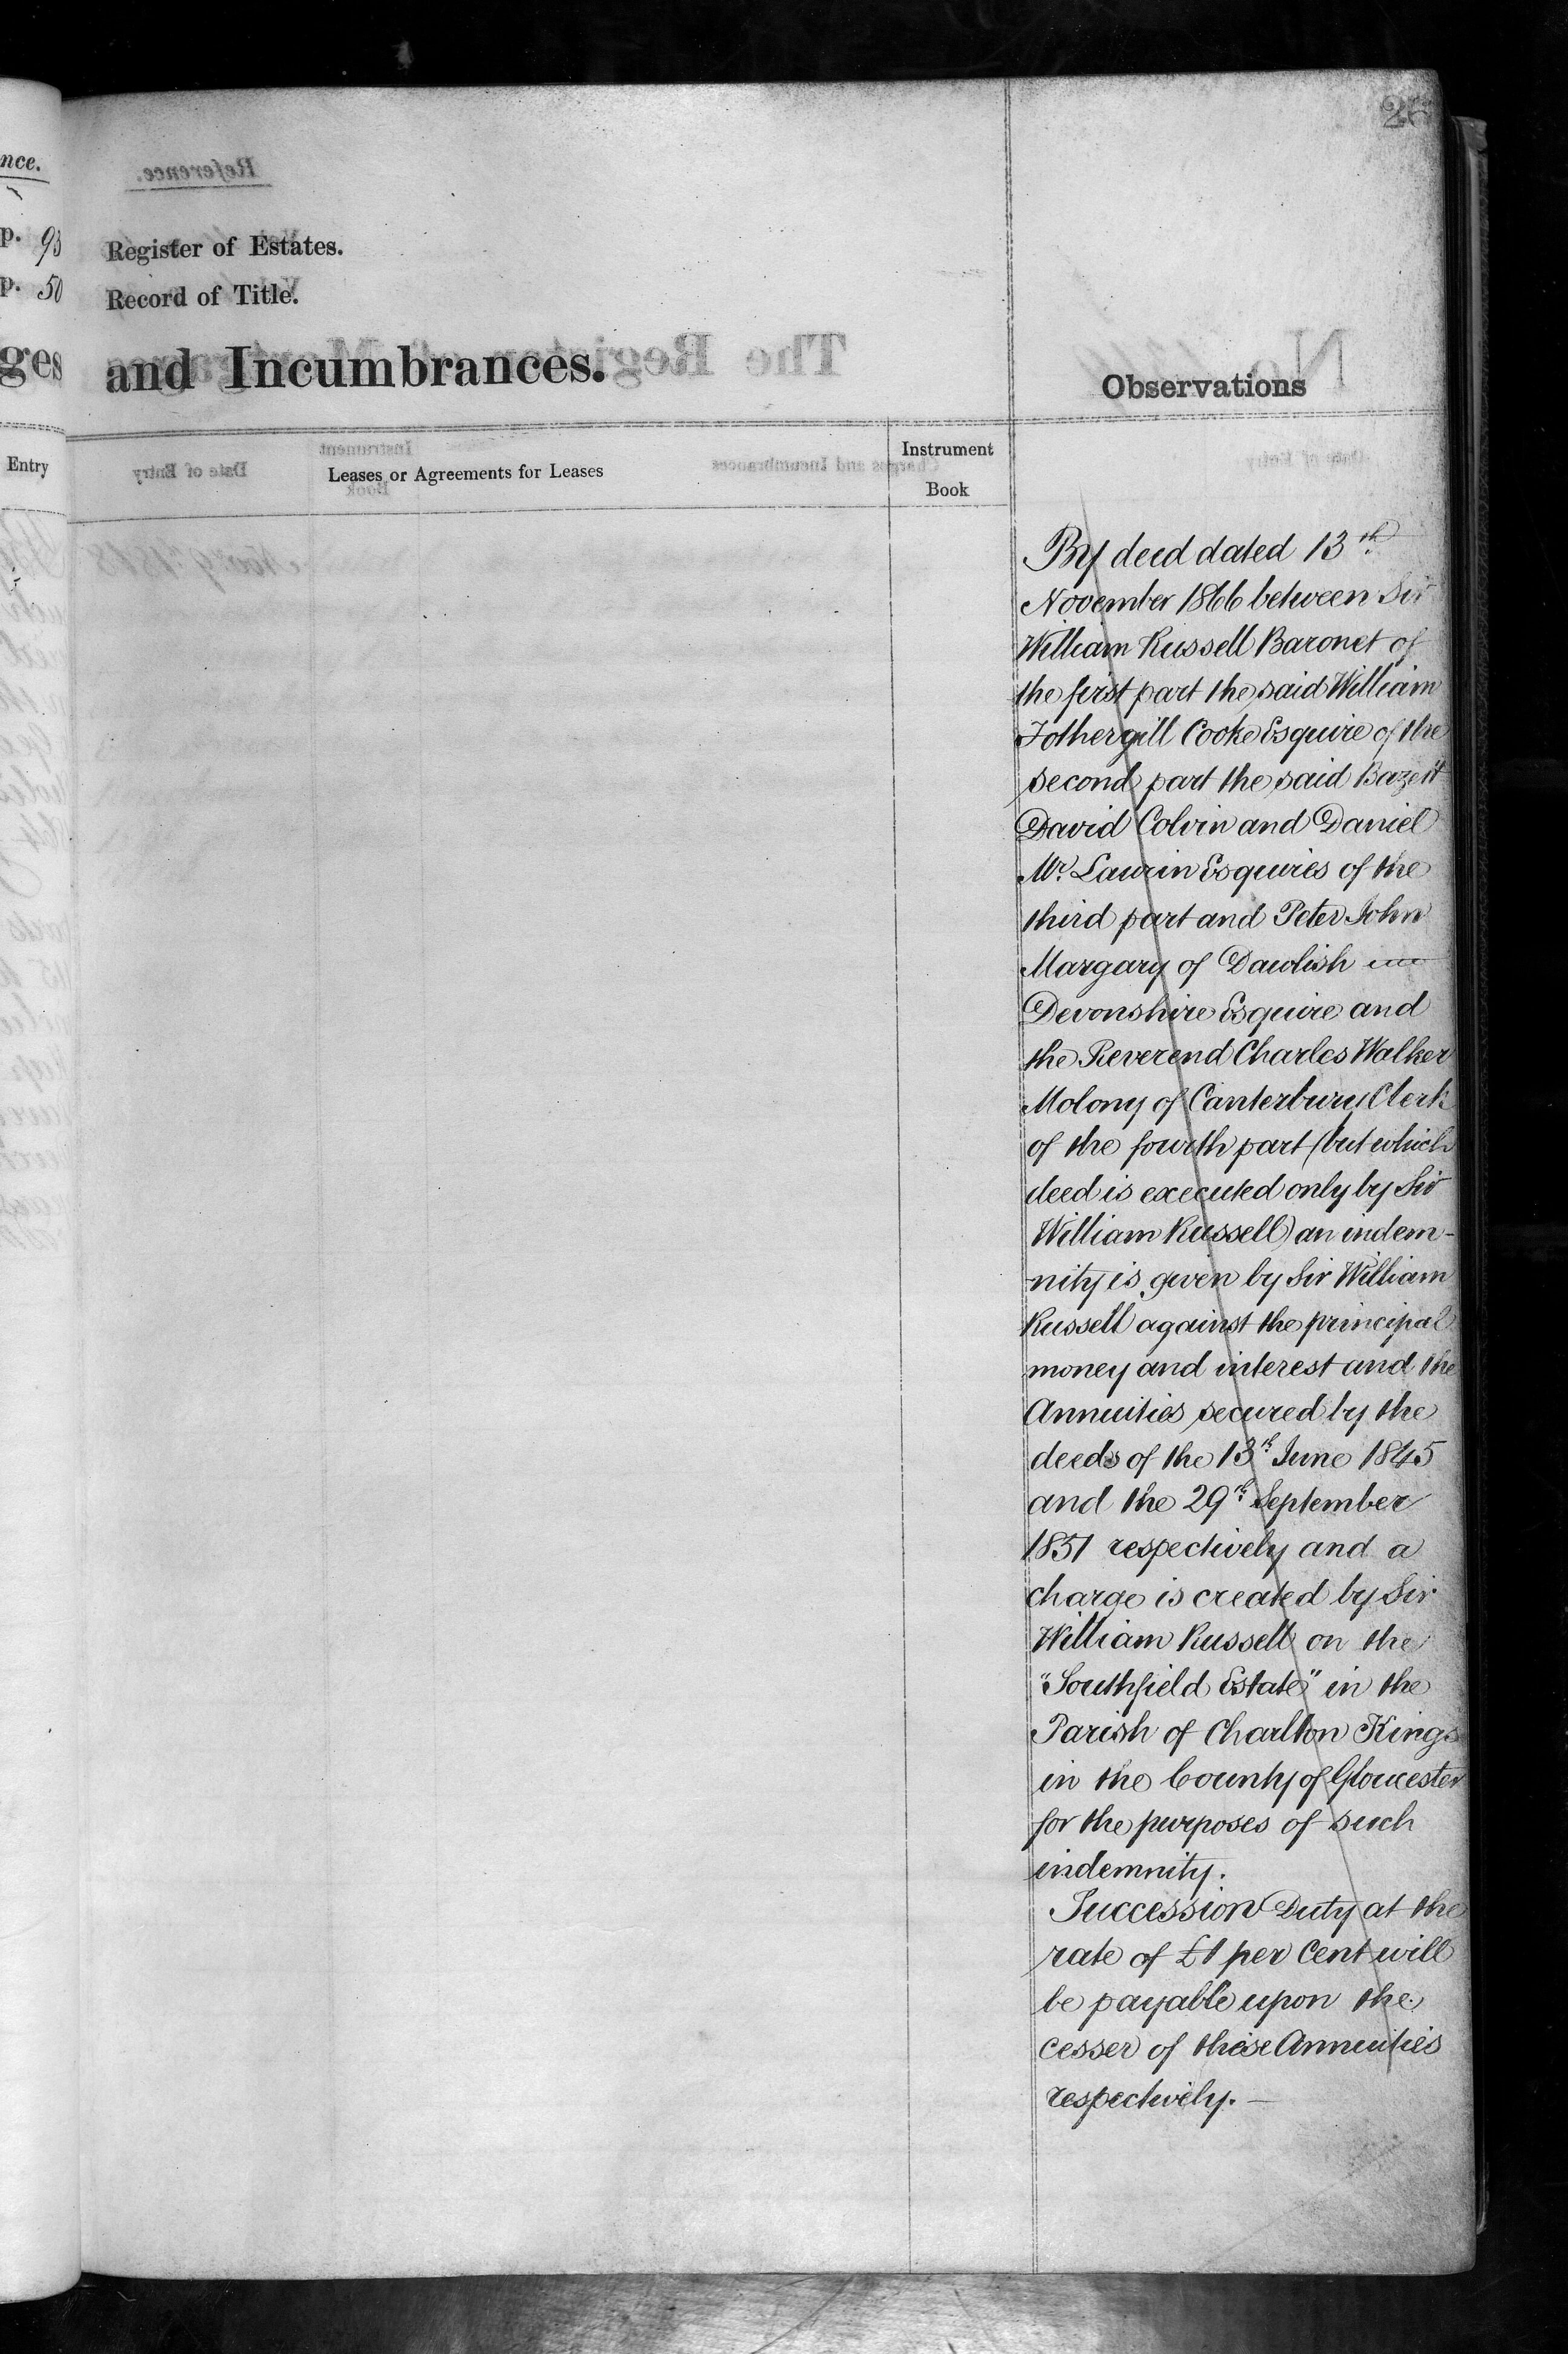 nce.
p. 93
p. 50
ges
Entry
Register of Estates.
Record of Title.
and Incumbrances.
Observations
Leases or Agreements for Leases
Instrument
Book
By deed dated 13th
November 1866 between Sir
William Russell Baronet of
the first part the said William
Fothergill Cooke Esquire of the
second part the said Bazett
David Colvin and Daniel
Mc. Laurin Esquires of the
third part and Peter John
Margary of Dawlish in
Devonshire Esquire and
the Reverend Charles Walker
Molony of Canterbury Clerk
of the fourth part (but which
deed is executed only by Sir
William Russell) an indem-
nity is given by Sir William
Russell against the principal
money and interest and the
Annuities secured by the
deeds of the 13th June 1845
and the 29th September
1851 respectively and a
charge is created by Sir
William Russell on the
"Southfield Estate" in the
Parish of Charlton Kings
in the County of Gloucester
for the purposes of such
indemnity.
Succession Duty at the
rate of £1 per Cent will
be payable upon the
cesser of these Annuities
respectively. —